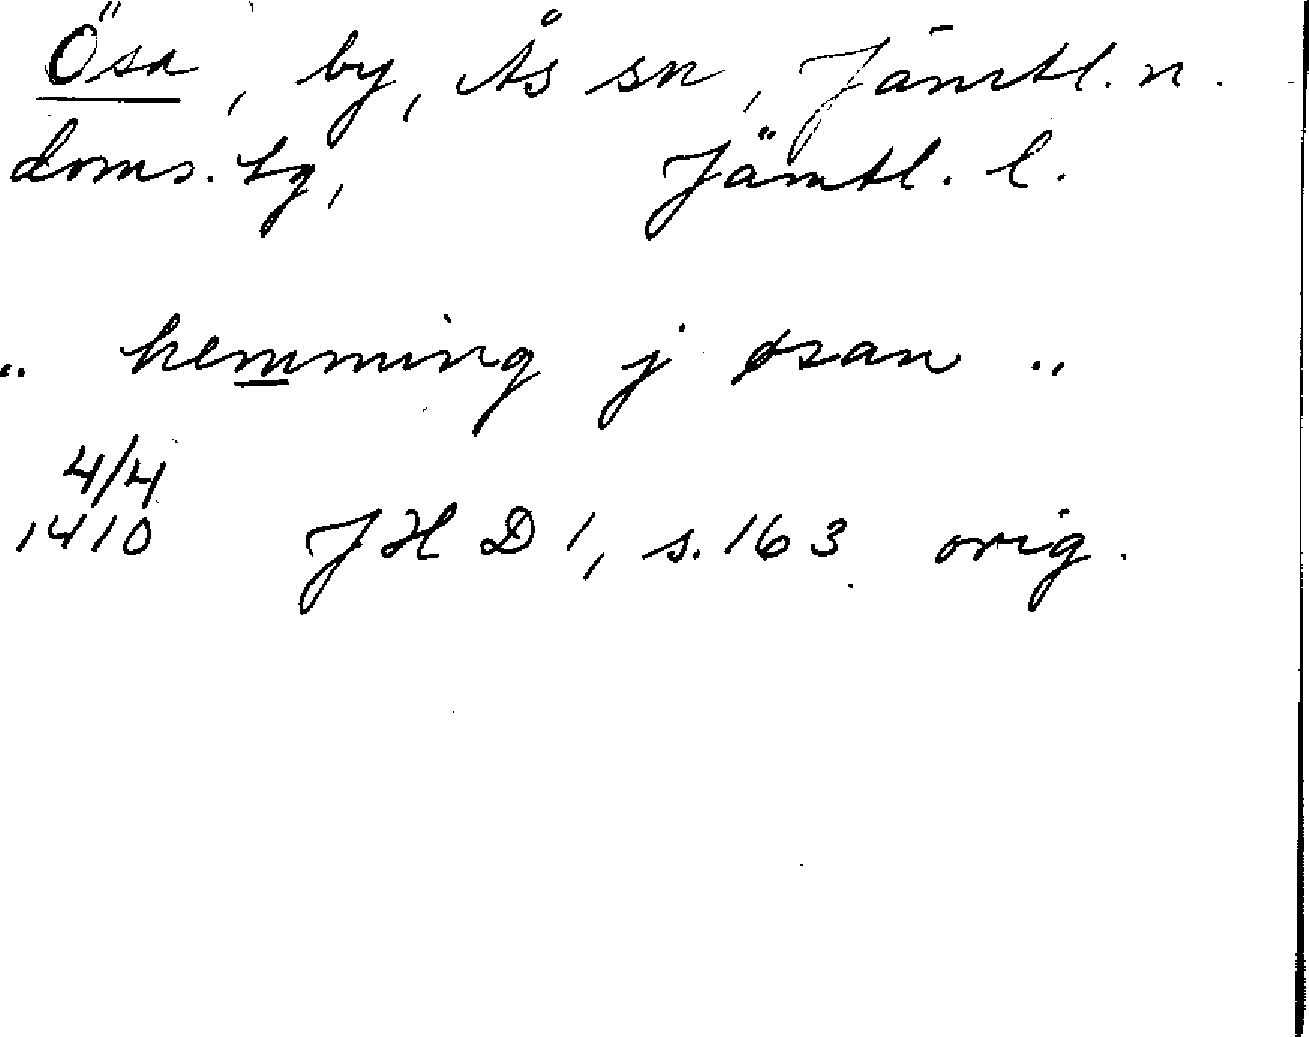 Ösa, by, Ås sn, Jämtl. n.
doms. tg, Jämtl. l.
.. hemming j øsan ..
4/4
1410 JHD 1, s. 163 orig.